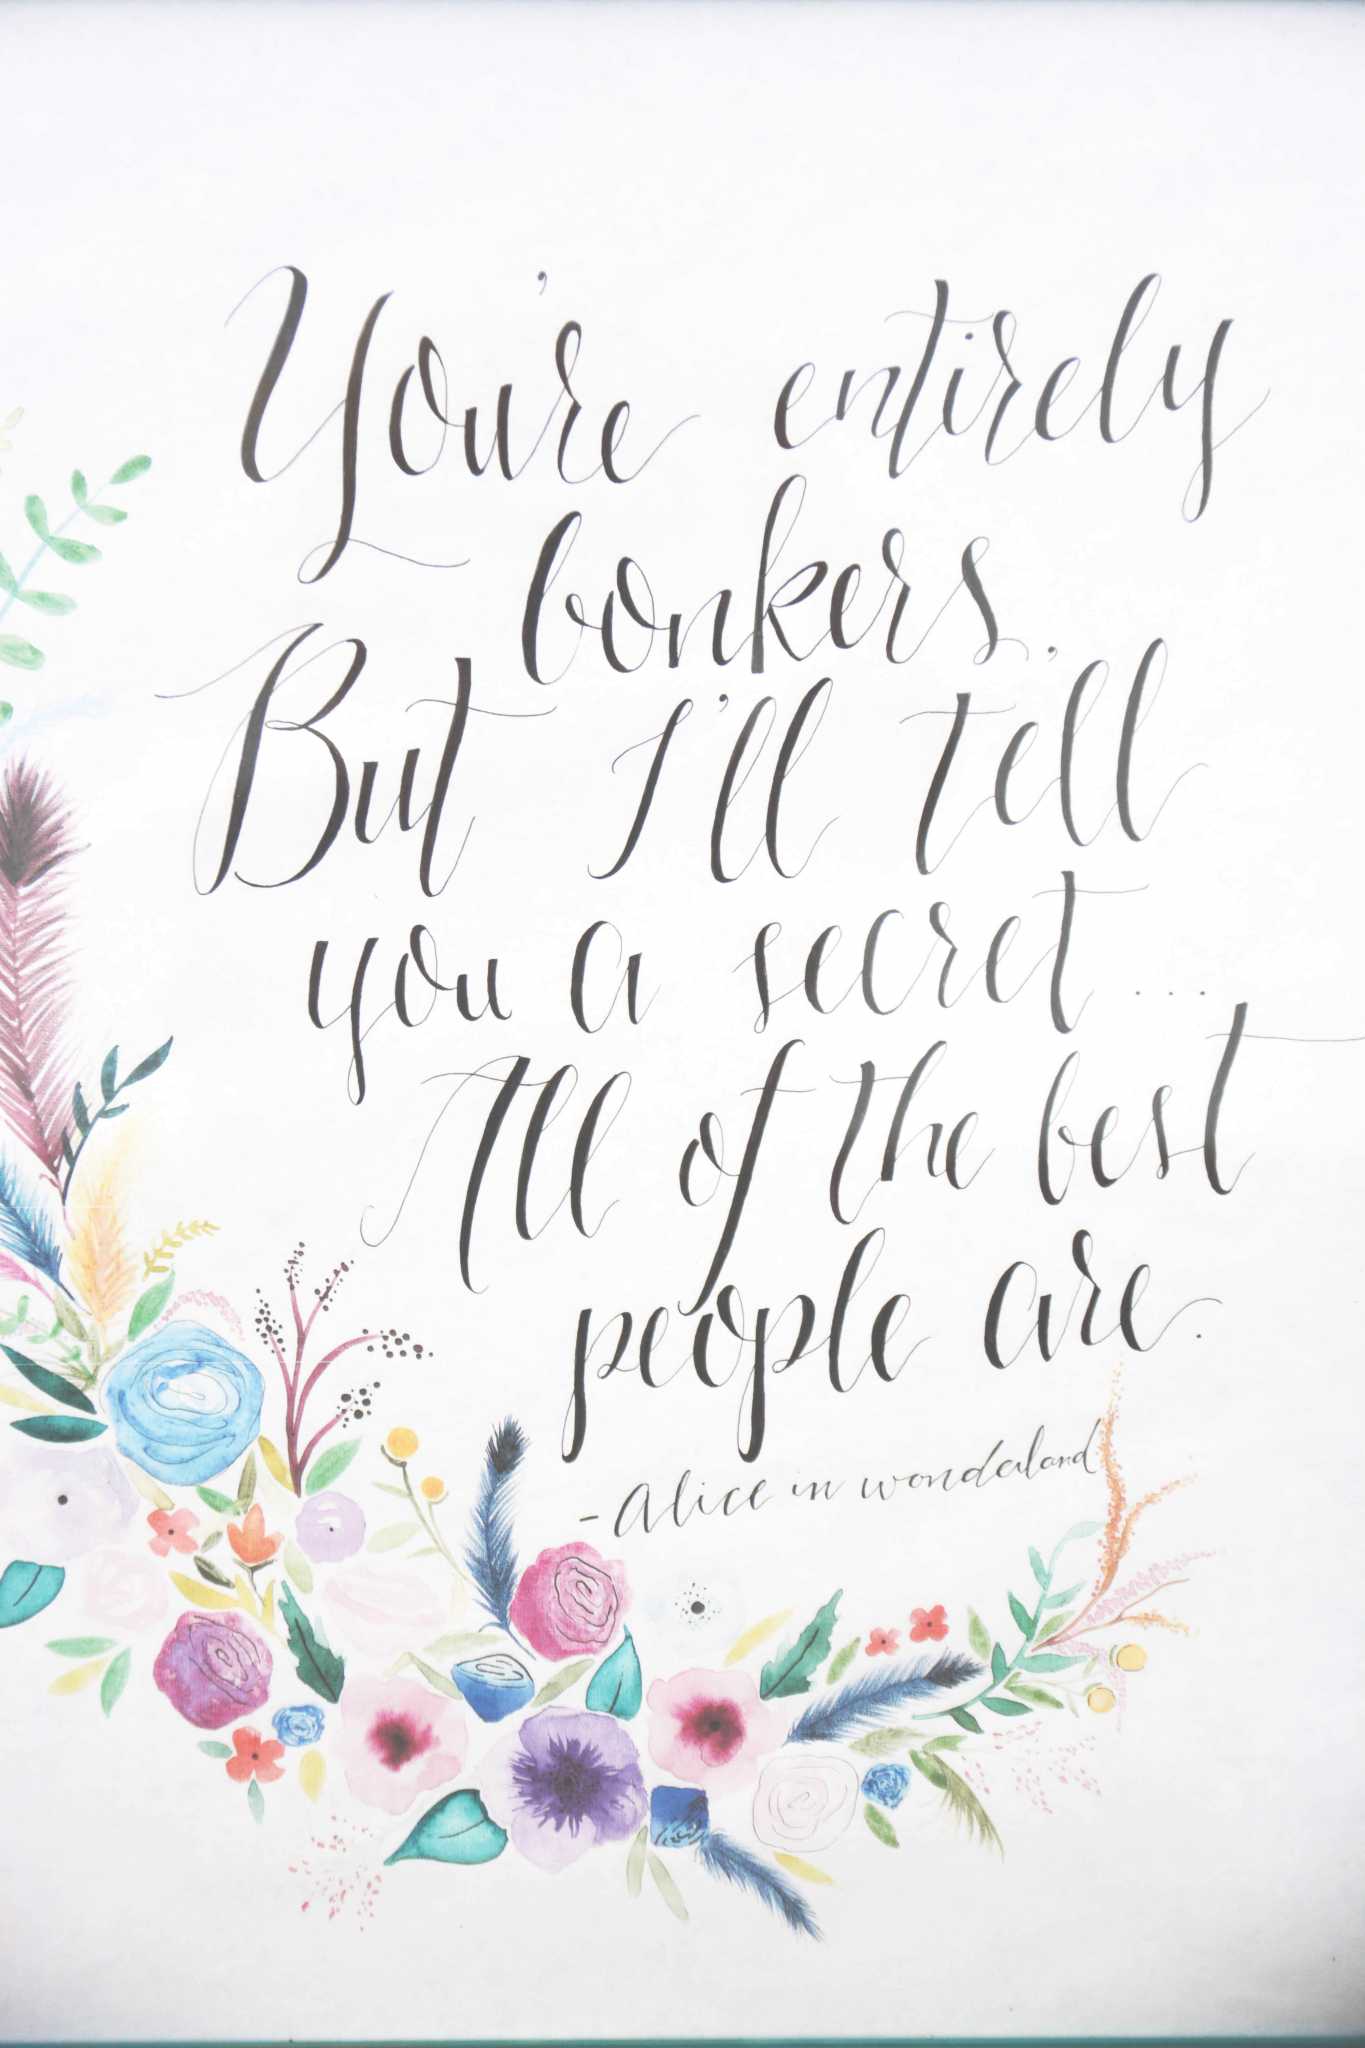 You're entirely
bonkers.
But I'll tell
you a secret...
All of the best
people are.
- Alice in wonderland